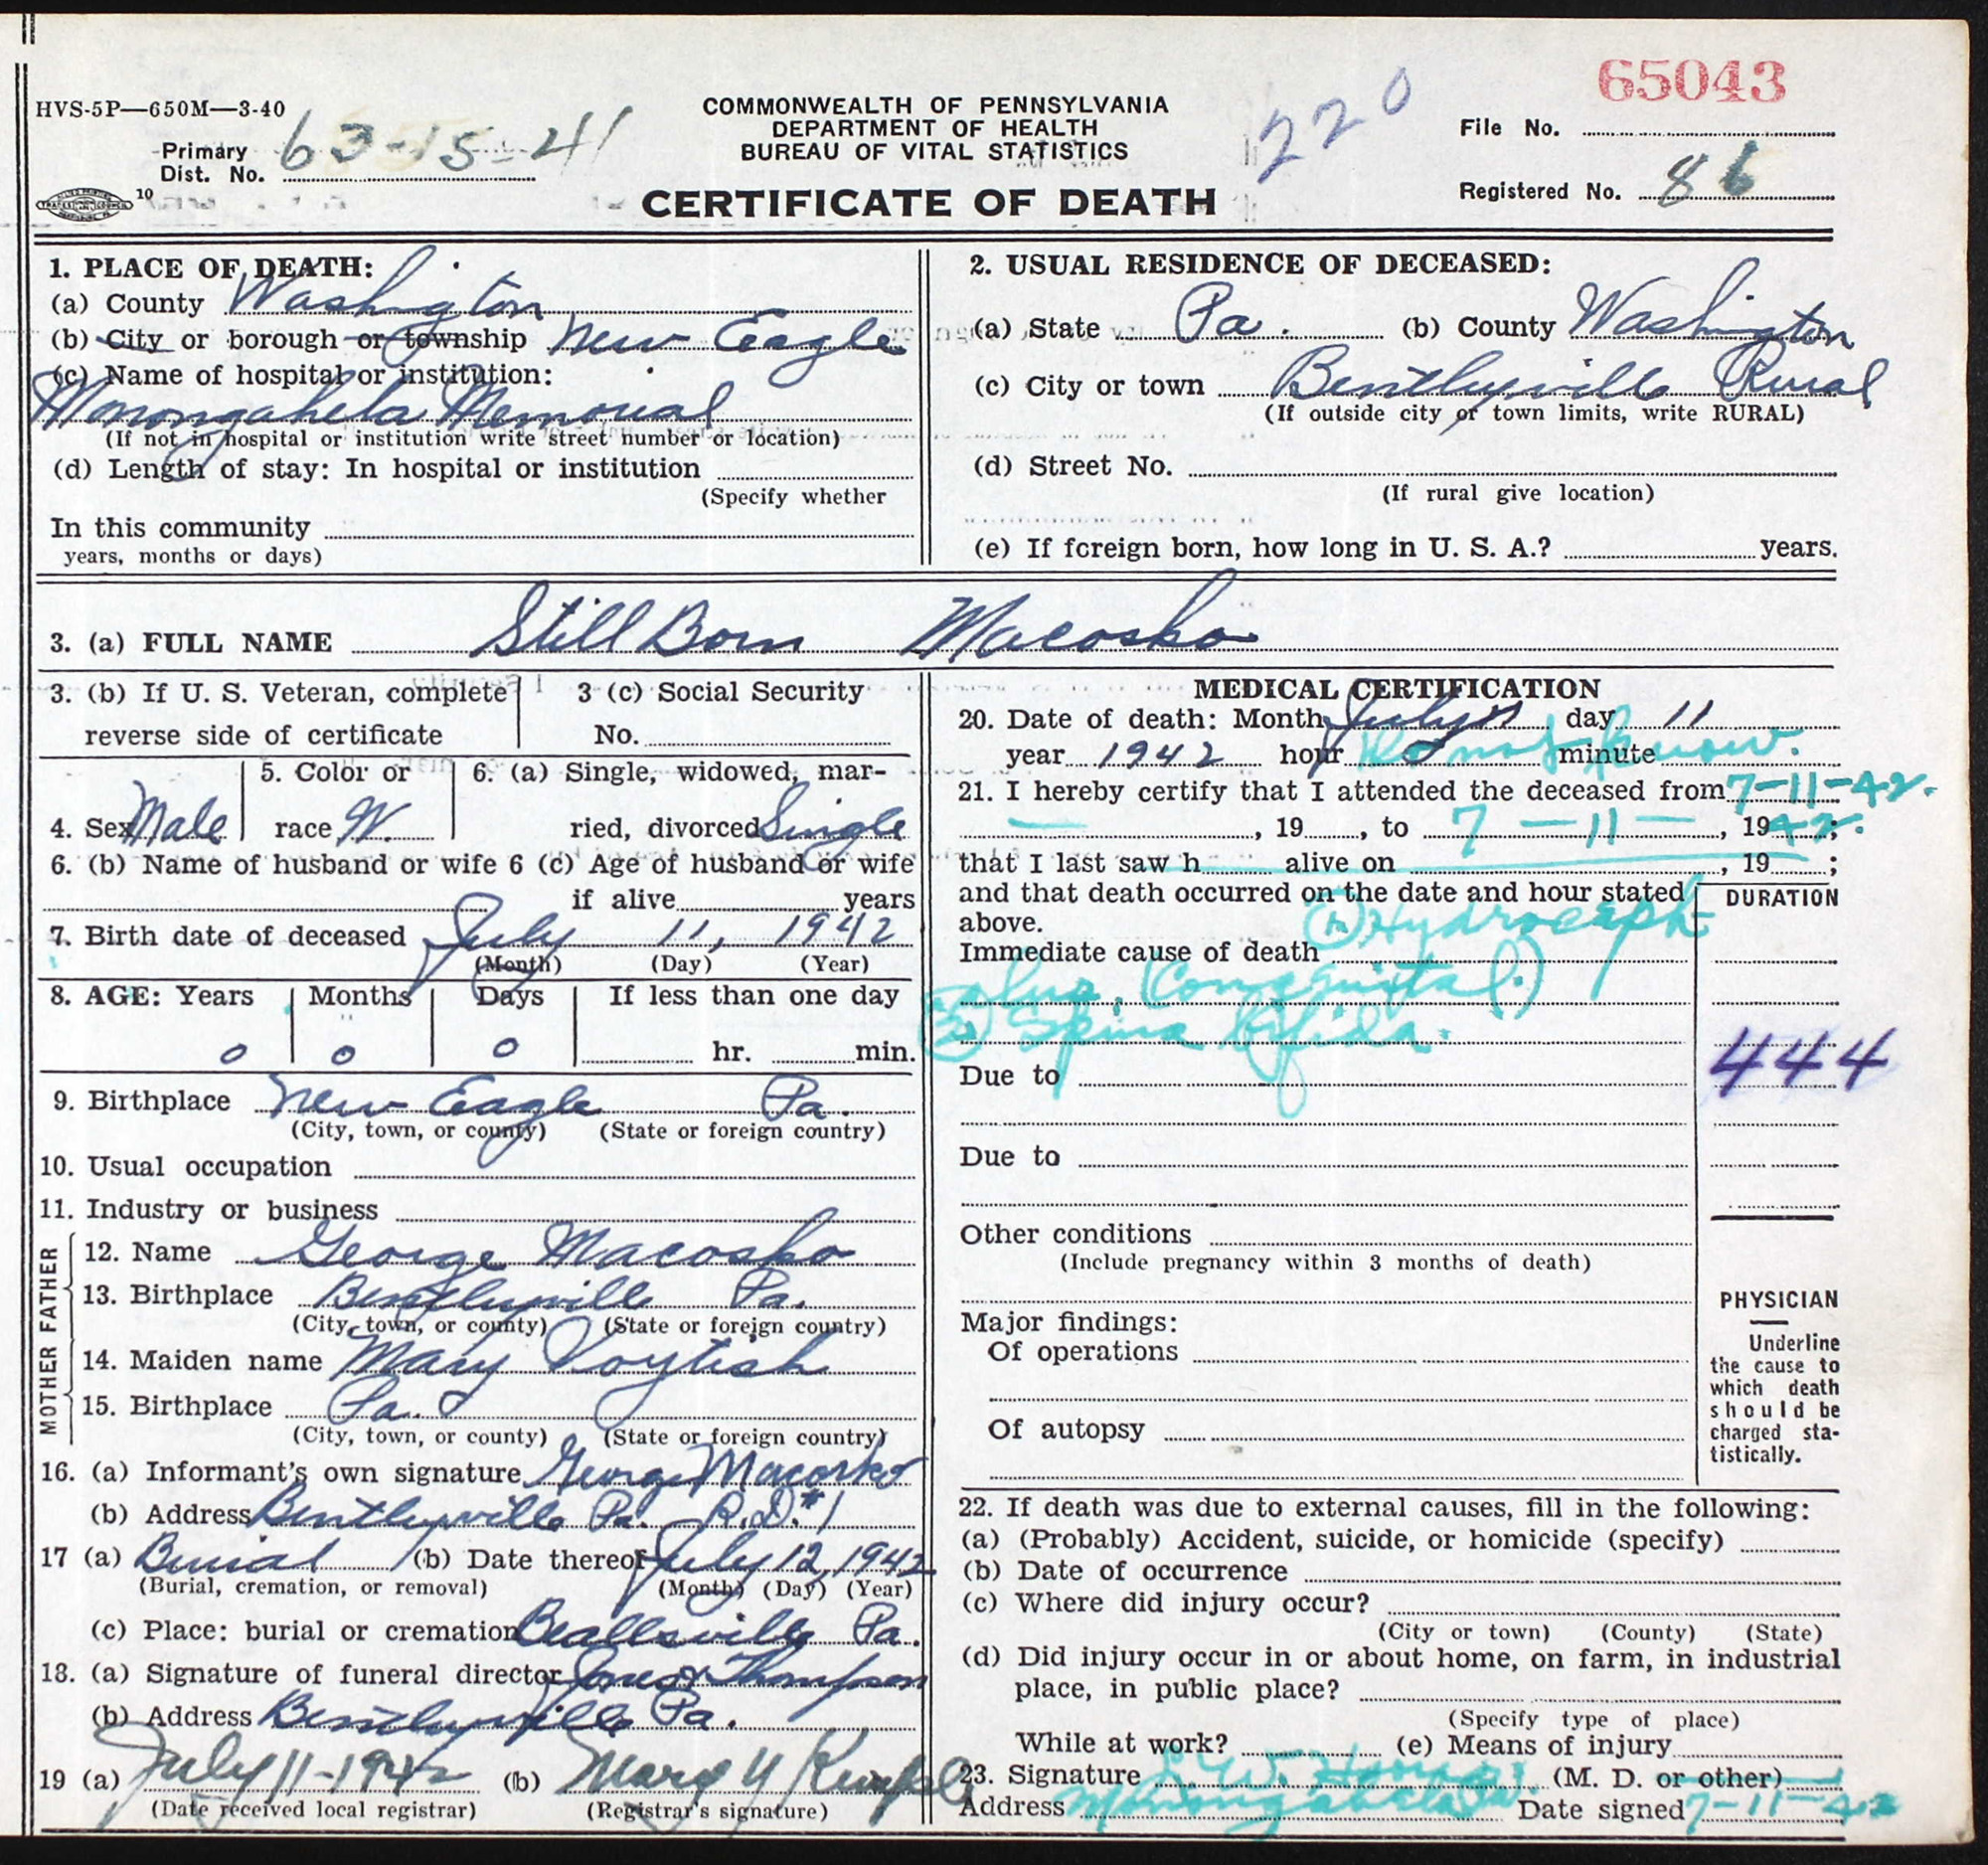 65043
HVS-5P—650M—3-40
COMMONWEALTH OF PENNSYLVANIA
DEPARTMENT OF HEALTH
BUREAU OF VITAL STATISTICS
CERTIFICATE OF DEATH
220
Primary
Dist. No. 63-15-41
10
File No.
Registered No. 86
1. PLACE OF DEATH:
(a) County Washington
(b) City or borough or township New Eagle
(c) Name of hospital or institution:
Monongahela Memorial
(If not in hospital or institution write street number or location)
(d) Length of stay: In hospital or institution
(Specify whether
In this community
years, months or days)
2. USUAL RESIDENCE OF DECEASED:
(a) State Pa. (b) County Washington
(c) City or town Bentleyville Rural
(If outside city or town limits, write RURAL)
(d) Street No.
(If rural give location)
(e) If foreign born, how long in U. S. A.? years.
3. (a) FULL NAME Still Born Macosko
3. (b) If U. S. Veteran, complete
reverse side of certificate
3 (c) Social Security
No.
4. Sex Male
5. Color or
race W.
6. (a) Single, widowed, mar-
ried, divorced Single
6. (b) Name of husband or wife 6 (c) Age of husband or wife
if alive years
7. Birth date of deceased July 11, 1942
(Month) (Day) (Year)
8. AGE: Years Months Days If less than one day
0 0 0 hr. min.
9. Birthplace New Eagle Pa.
(City, town, or county) (State or foreign country)
10. Usual occupation
11. Industry or business
FATHER
12. Name George Macosko
13. Birthplace Bentleyville Pa.
(City, town, or county) (State or foreign country)
MOTHER
14. Maiden name Mary Voytish
15. Birthplace Pa.
(City, town, or county) (State or foreign country)
16. (a) Informant's own signature George Macosko
(b) Address Bentleyville Pa. R.D. #1
17 (a) Burial (b) Date thereof July 12, 1942
(Burial, cremation, or removal) (Month) (Day) (Year)
(c) Place: burial or cremation Beallsville Pa.
18. (a) Signature of funeral director Thompson
(b) Address Bentleyville Pa.
19 (a) July 11-1942 (b) Mary Y
(Date received local registrar) (Registrar's signature)
MEDICAL CERTIFICATION
20. Date of death: Month July day 11
year 1942 hour Do not know. minute
21. I hereby certify that I attended the deceased from 7-11-42.
— , 19 , to 7-11- , 1942.;
that I last saw h alive on , 19 ;
and that death occurred on the date and hour stated
above.
DURATION
Immediate cause of death (1) Hydroceph-
alus, (Congenital.)
(2) Spina Bifida.
444
Due to
Due to
Other conditions
(Include pregnancy within 3 months of death)
Major findings:
Of operations
Of autopsy
PHYSICIAN
Underline
the cause to
which death
should be
charged sta-
tistically.
22. If death was due to external causes, fill in the following:
(a) (Probably) Accident, suicide, or homicide (specify)
(b) Date of occurrence
(c) Where did injury occur?
(City or town) (County) (State)
(d) Did injury occur in or about home, on farm, in industrial
place, in public place?
(Specify type of place)
While at work? (e) Means of injury
23. Signature (M. D. or other)
Address Monongahela Pa. Date signed 7-11-42